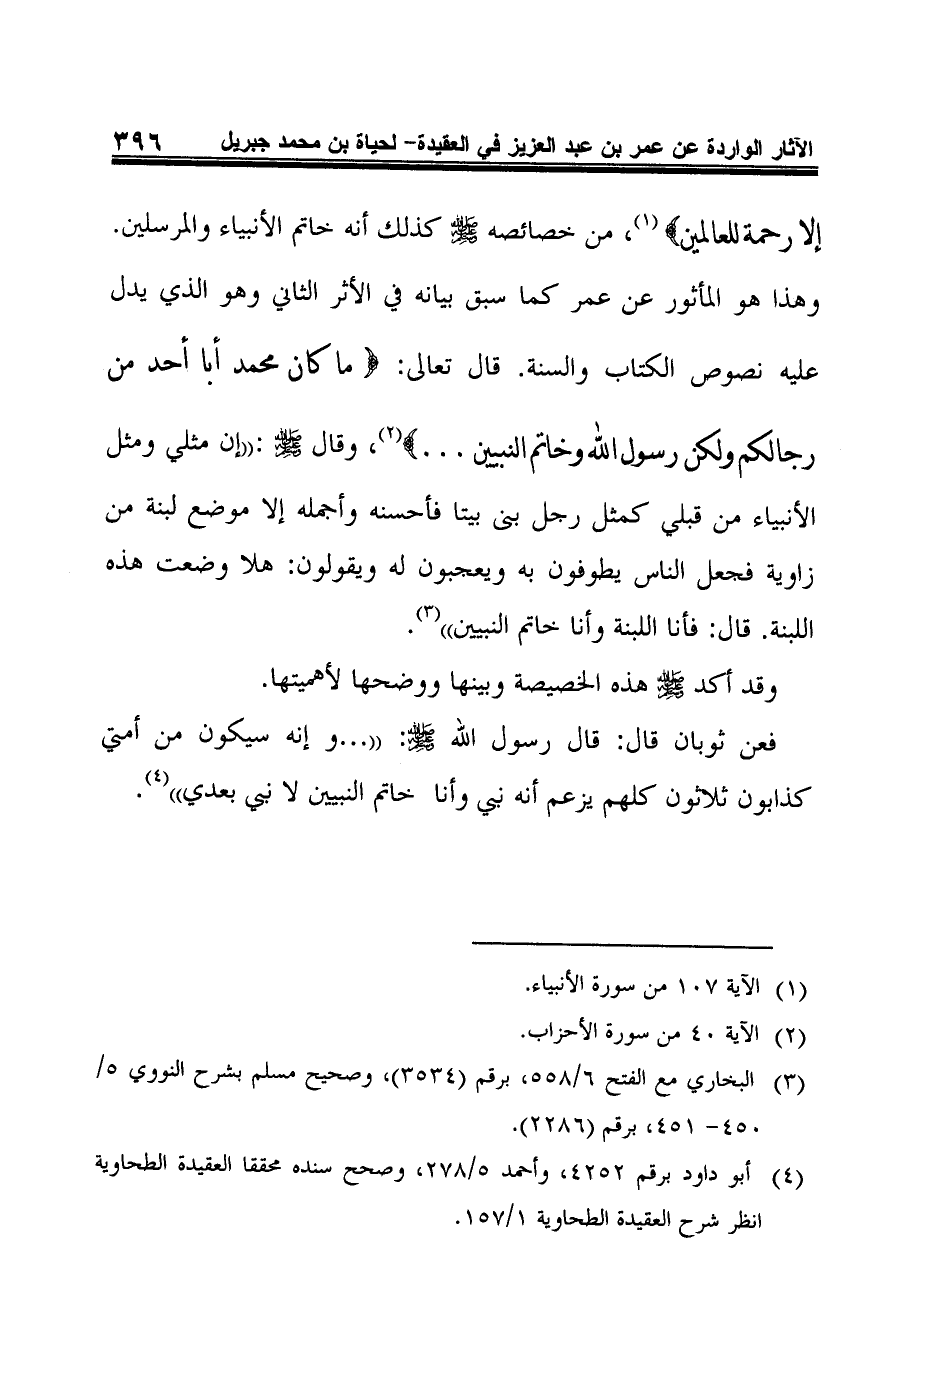 الآثار الواردة عن عمر بن عبد العزيز في العقيدة- لحياة بن محمد جبريل ٣٩٦
إلا رحمة للعالمين﴾(١)، من خصائصه ﷺ كذلك أنه خاتم الأنبياء والمرسلين.
وهذا هو المأثور عن عمر كما سبق بيانه في الأثر الثاني وهو الذي يدل
عليه نصوص الكتاب والسنة. قال تعالى: ﴿ ما كان محمد أبا أحد من
رجالكم ولكن رسول الله وخاتم النبيين ...﴾(٢)، وقال ﷺ :((إن مثلي ومثل
الأنبياء من قبلي كمثل رجل بنى بيتا فأحسنه وأجمله إلا موضع لبنة من
زاوية فجعل الناس يطوفون به ويعجبون له ويقولون: هلا وضعت هذه
اللبنة. قال: فأنا اللبنة وأنا خاتم النبيين))(٣).
وقد أكد ﷺ هذه الخصيصة وبينها ووضحها لأهميتها.
فعن ثوبان قال: قال رسول الله ﷺ: ((...و إنه سيكون من أمتي
كذابون ثلاثون كلهم يزعم أنه نبي وأنا خاتم النبيين لا نبي بعدي))(٤).
(١) الآية ١٠٧ من سورة الأنبياء.
(٢) الآية ٤٠ من سورة الأحزاب.
(٣) البخاري مع الفتح ٥٥٨/٦، برقم (٣٥٣٤)، وصحيح مسلم بشرح النووي ٥/
٤٥٠- ٤٥١، برقم (٢٢٨٦).
(٤) أبو داود برقم ٤٢٥٢، وأحمد ٢٧٨/٥، وصحح سنده محققا العقيدة الطحاوية
انظر شرح العقيدة الطحاوية ١٥٧/١.